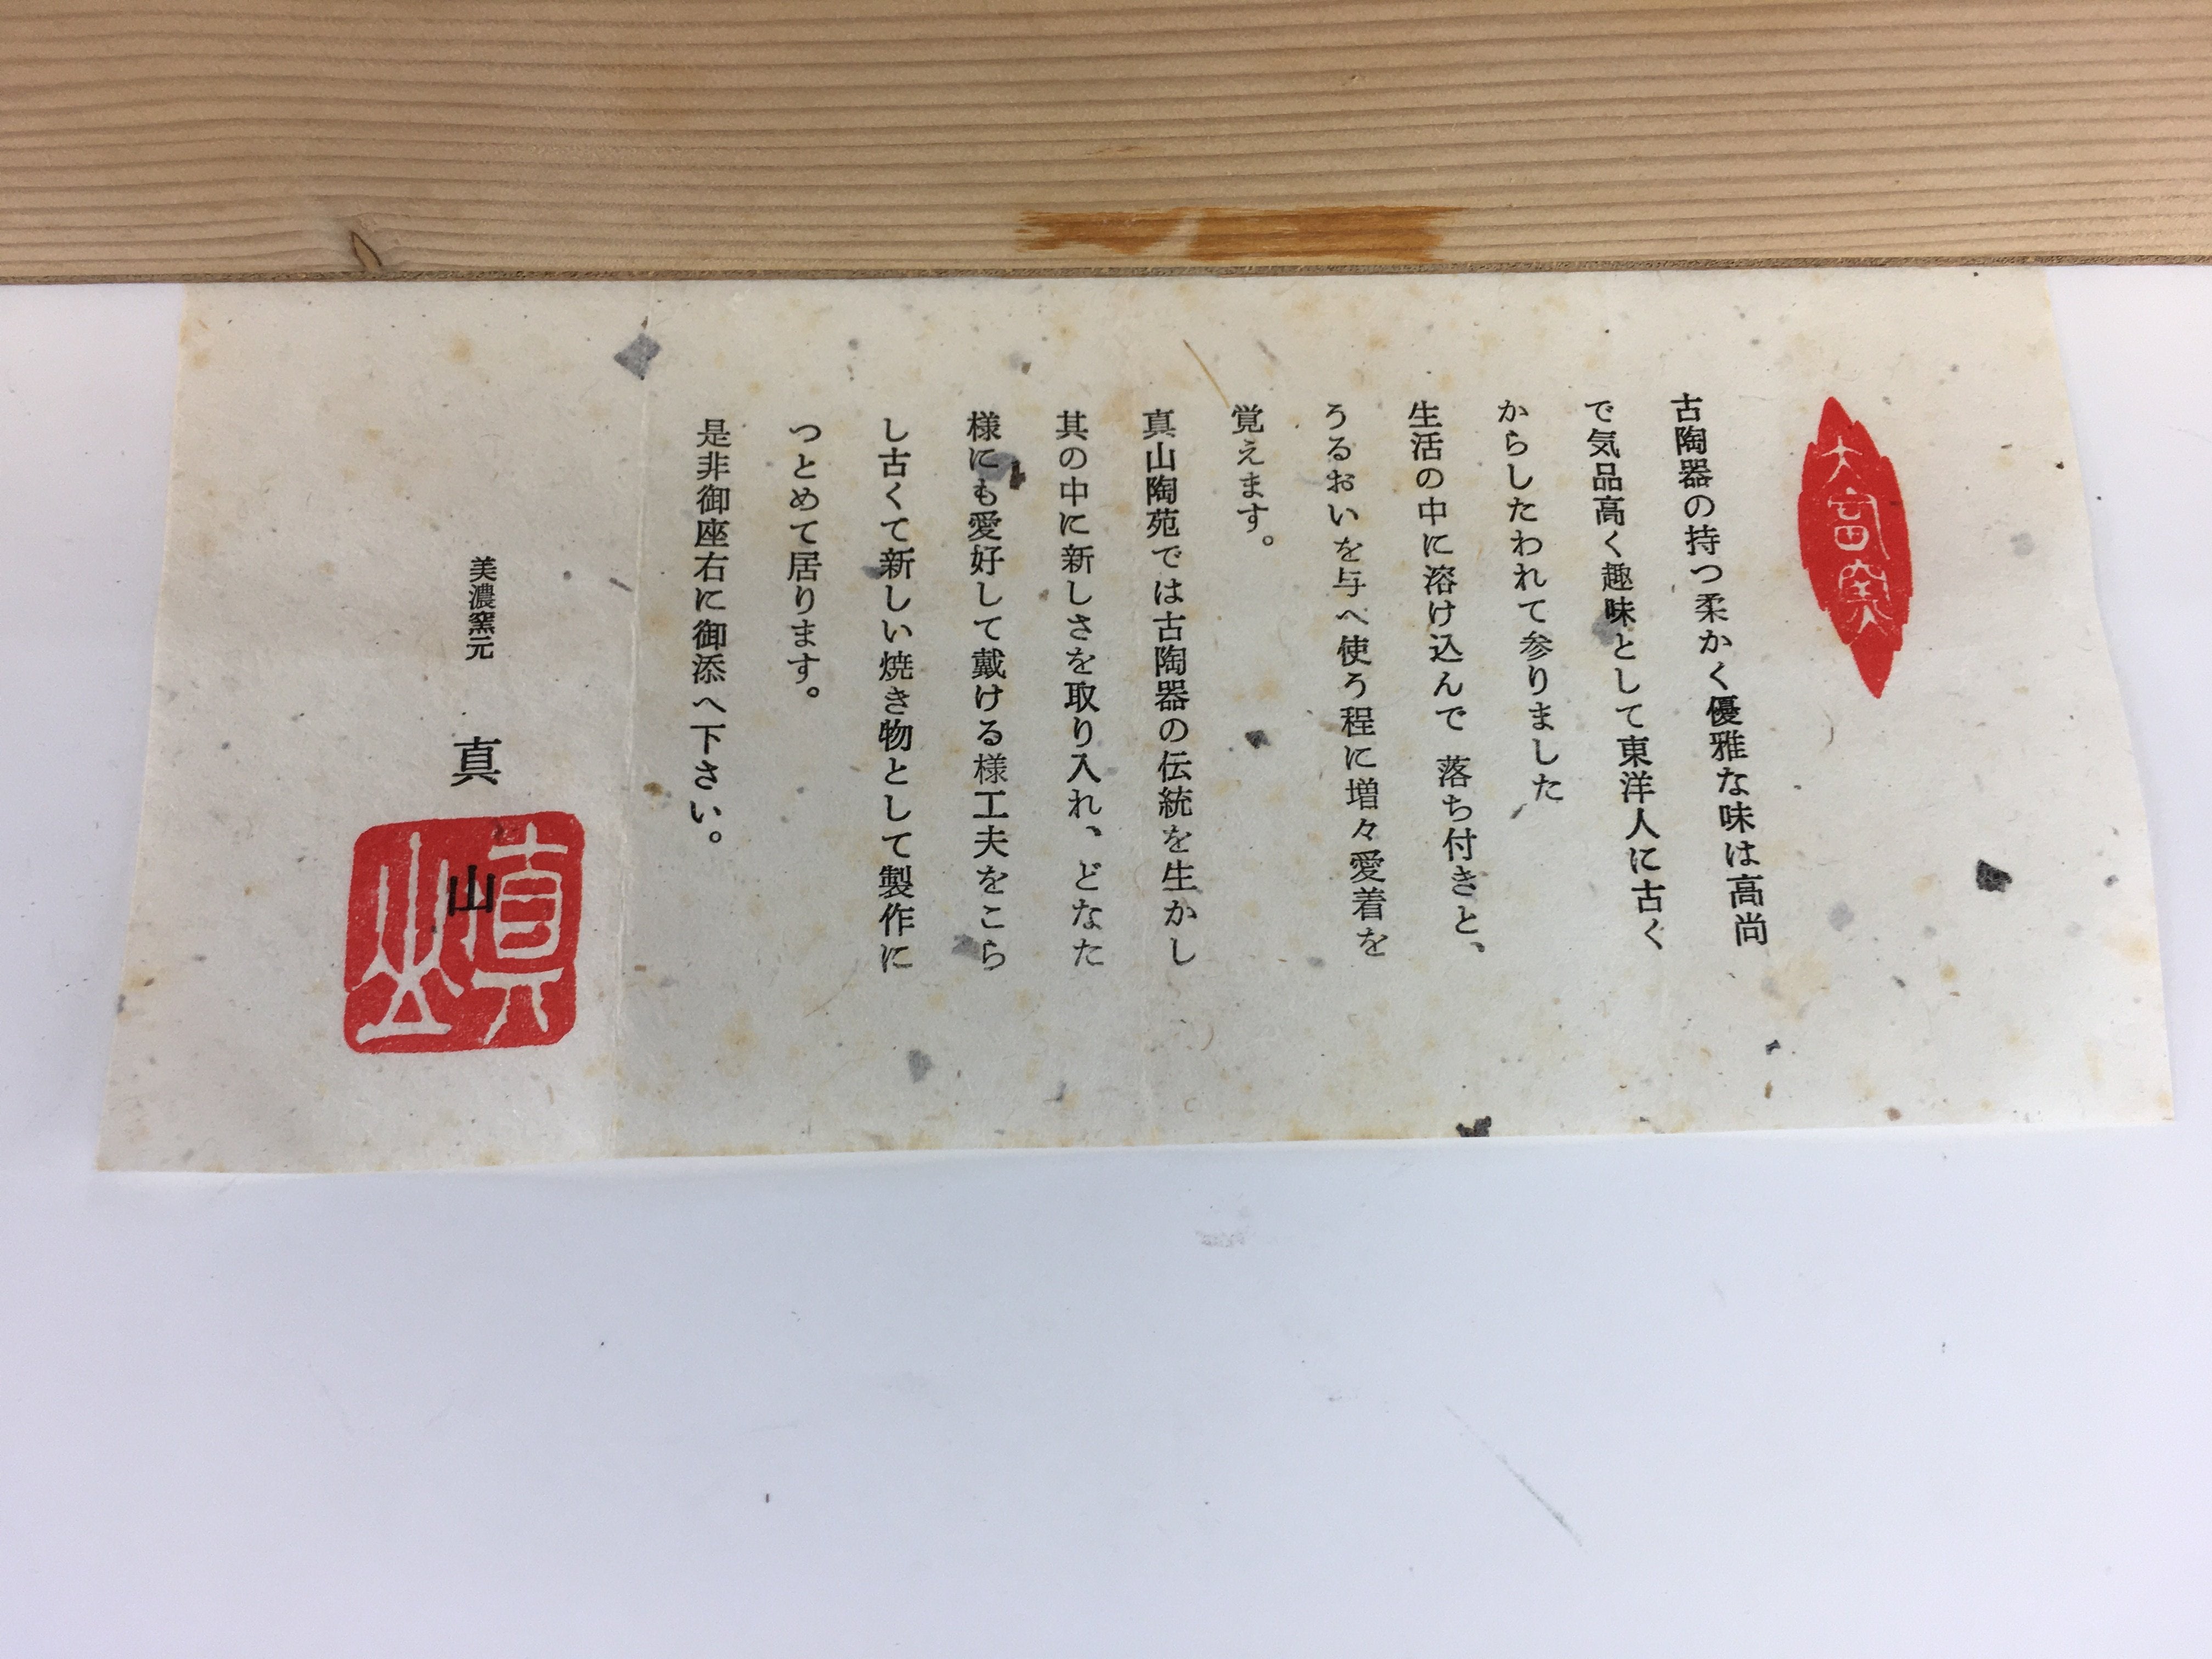 大富窯
古陶器の持つ柔かく優雅な味は高尚
で気品高く趣味として東洋人に古く
からしたわれて参りました
生活の中に溶け込んで 落ち付きと、
うるおいを与へ使う程に増々愛着を
覚えます。
真山陶苑では古陶器の伝統を生かし
其の中に新しさを取り入れ、どなた
様にも愛好して戴ける様工夫をこら
し古くて新しい焼き物として製作に
つとめて居ります。
是非御座右に御添へ下さい。
美濃窯元 真山
真山